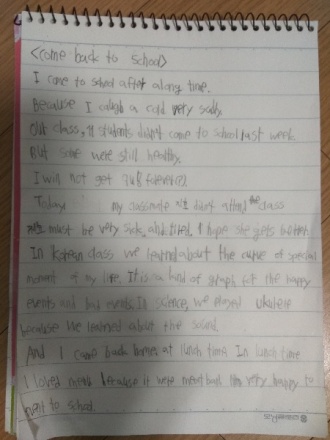 <come back to school>
I came to school after along time.
Because I caugh a cold very sadly.
Our class, 11 students didn't come to school last week.
But some were still healthy.
I will not get forever
Today my classmate didn't attend the class
must be very sick, and tired. I hope she gets better
In Korean class we learned about the curve of special
moment of my life. It is a kind of graph for the happy
events and bad events. In science, we played ukulele
because we learned about the sound.
And I came back home at lunch time. In lunch time
I loved because it were meat back I'm very happy to
went to school.